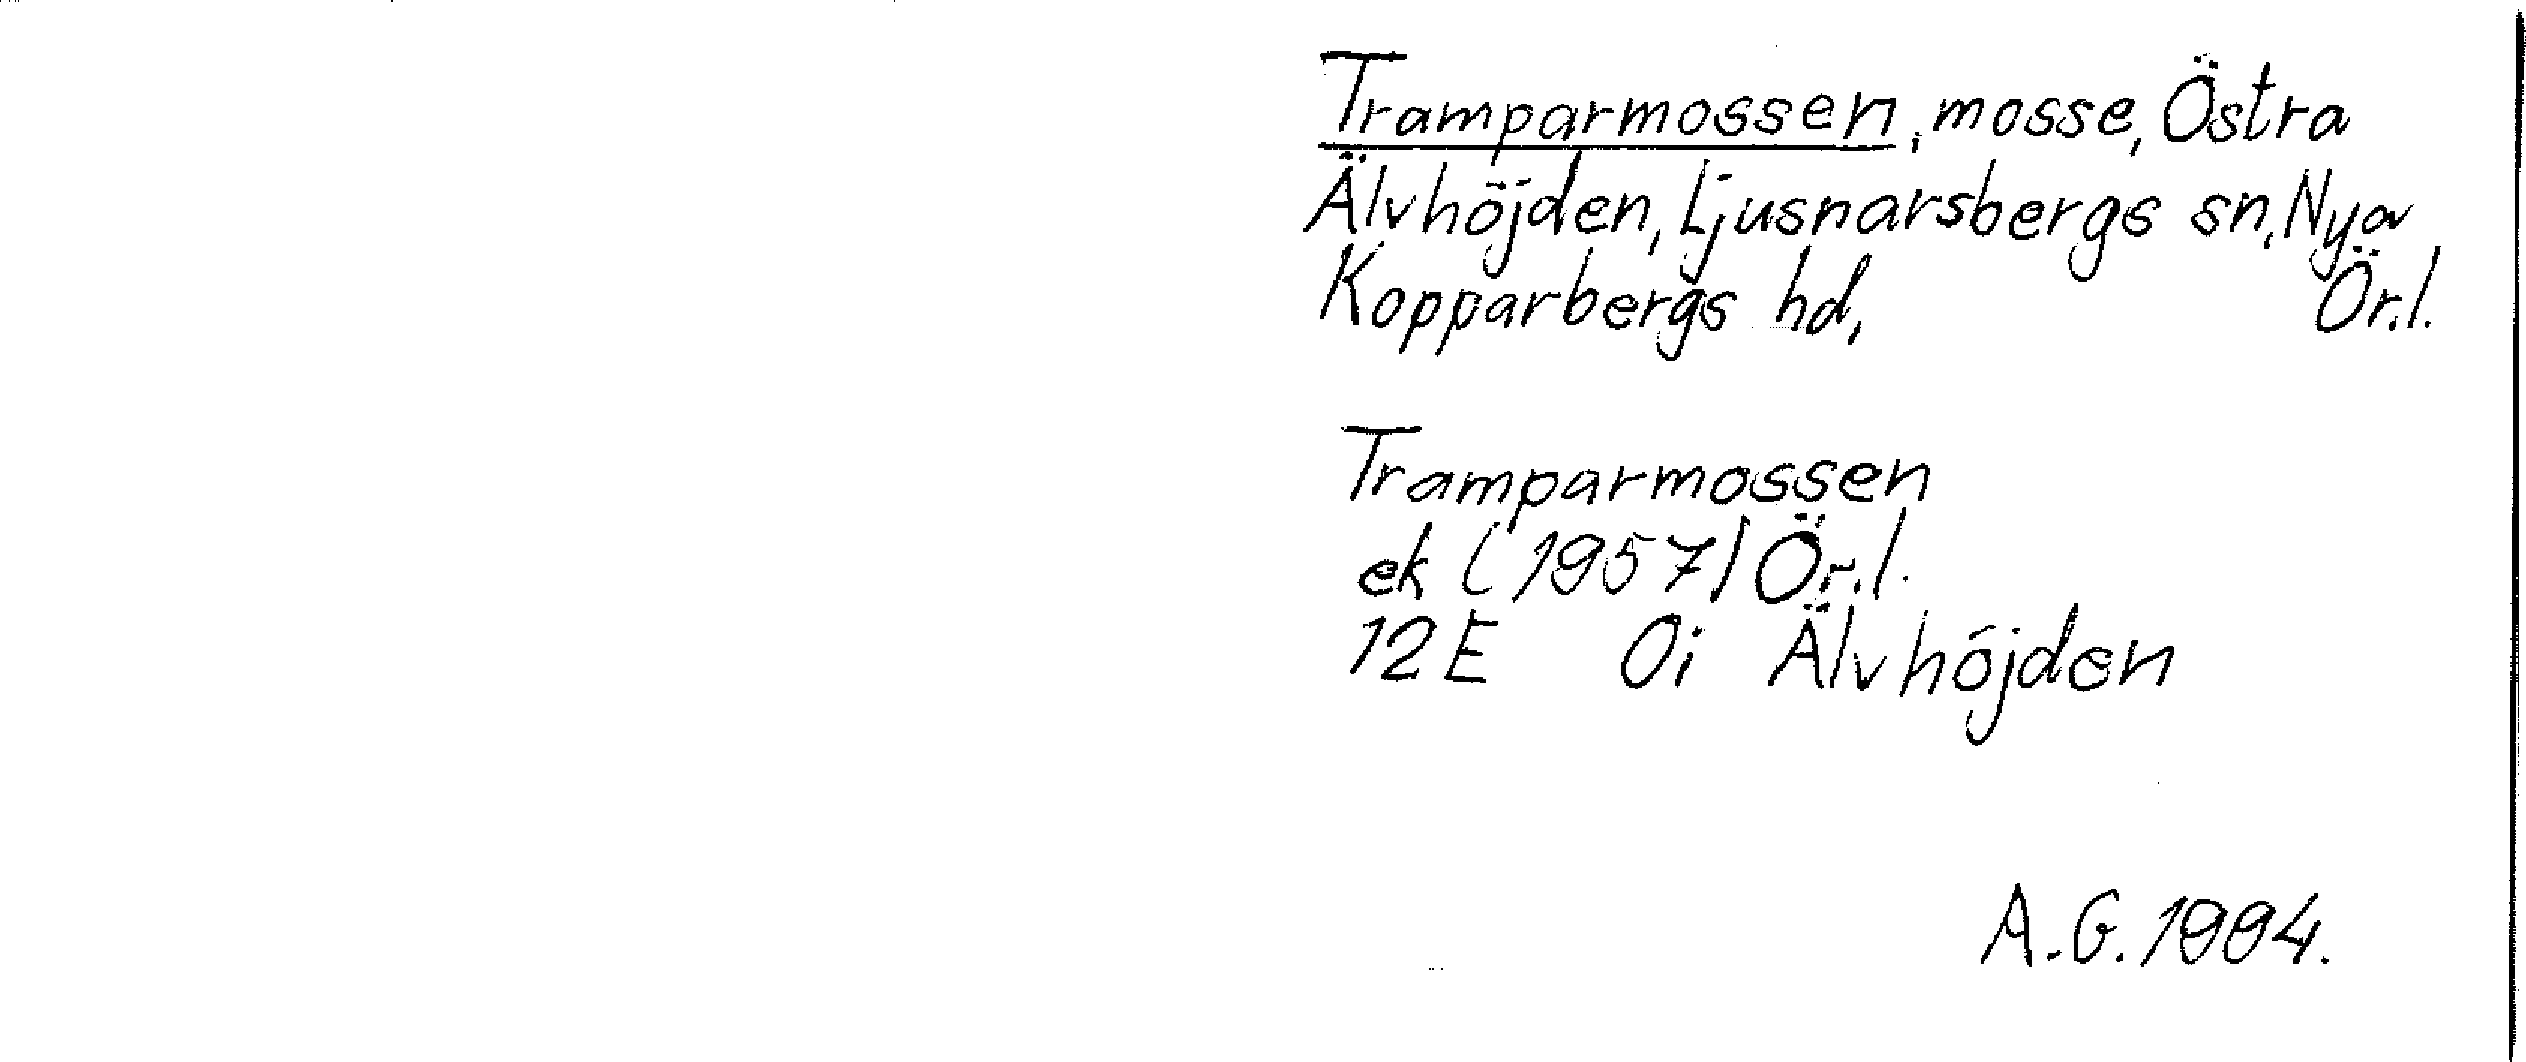 Tramparmossen, mosse, Östra
Älvhöjden, Ljusnarsbergs sn, Nya
Kopparbergs hd, Ör.l.
Tramparmossen
ek (1957) Ör.l.
12E 0i Älvhöjden
A.G. 1994.